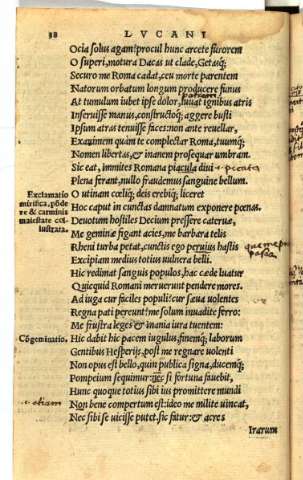 38 LVCANI
Ocia solus agam? procul hunc arcete furorem
O superi, motura Dacas ut clade, Getasq́;
Securo me Roma cadat, ceu morte parentem
Natorum orbatum longum producere funus
At tumulum iubet ipse dolor, iuuat ignibus atris
Inseruisse manus, constructoq́; aggere busti
Ipsum atras tenuisse faces: non ante reuellar,
Exanimem quàm te complectar Roma, tuumq́;
Nomen libertas, & inanem prosequar umbram.
Sic eat, immites Romana piacula diui
Plena ferant, nullo fraudemus sanguine bellum.
Exclamatio
mirifica, põde
re & carminis
maiestate
illustrata.
O utinam cœliq́; deis erebiq́; liceret
Hoc caput in cunctas damnatum exponere pœnas.
Deuotum hostiles Decium pressere cateruæ,
Me geminæ figant acies, me barbara telis
Rheni turba petat, cunctis ego peruius hastis
Excipiam medius totius uulnera belli.
Hic redimat sanguis populos, hac cæde luatur
Quicquid Romani meruerunt pendere mores.
Ad iuga cur faciles populi? cur sæua uolentes
Regna pati pereunt? me solum inuadite ferro:
Me frustra leges & inania iura tuentem:
Cõgeminatio.
Hic dabit hic pacem iugulus, finemq́; laborum
Gentibus Hesperijs, post me regnare uolenti
Non opus est bello, quin publica signa, ducemq́;
Pompeium sequimur: nec si fortuna fauebit,
Hunc quoque totius sibi ius promittere mundi
etiam
Non bene compertum est: ideo me milite uincat,
Nec sibi se uicisse putet. sic fatur: & acres
Irarum